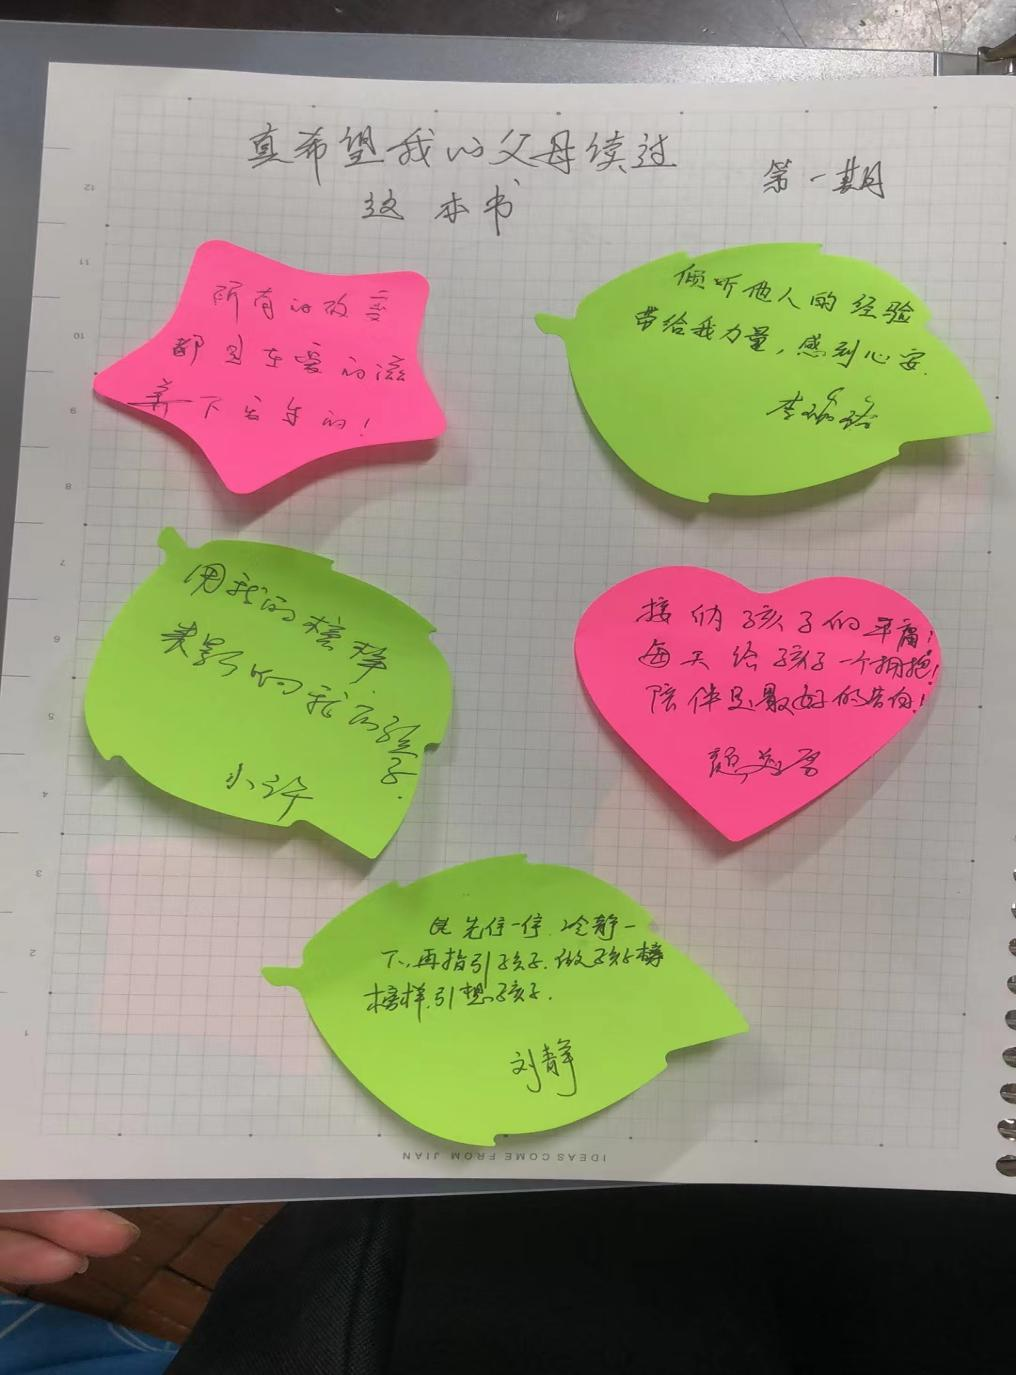 真希望我的父母读过
这本书
第一期
所有的改变
都是在爱的滋
养下发生的！
倾听他人的经验
带给我力量，感到心安.
李
用我的榜样
来影响我的孩子.
小许
接纳孩子的平庸！
每天给孩子一个拥抱！
陪伴是最好的告白！
颜
先停一停.冷静一
下，再指引孩子.做孩子榜
榜样.引想孩子.
刘静
IDEAS COME FROM JIAN
12
11
10
9
8
7
6
5
4
3
2
1